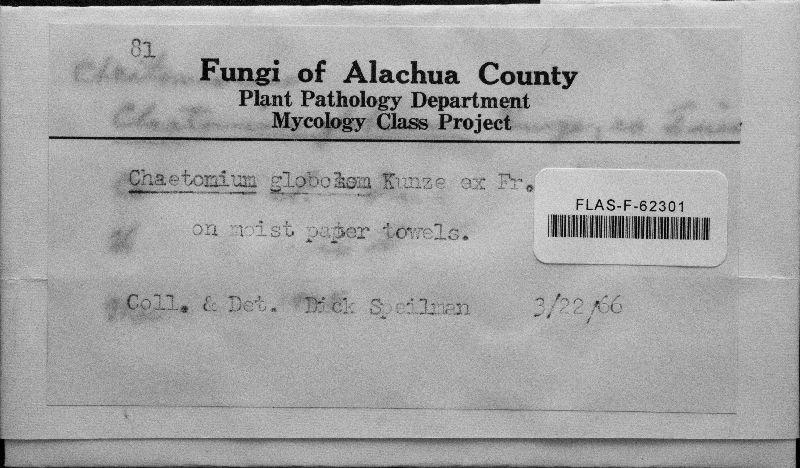 81
Fungi of Alachua County
Plant Pathology Department
Mycology Class Project
Chaetomium globosom Kunze ex Fr.
FLAS-F-62301
on moist paper towels.
Coll. & Det. Dick Speilman 3/22/66